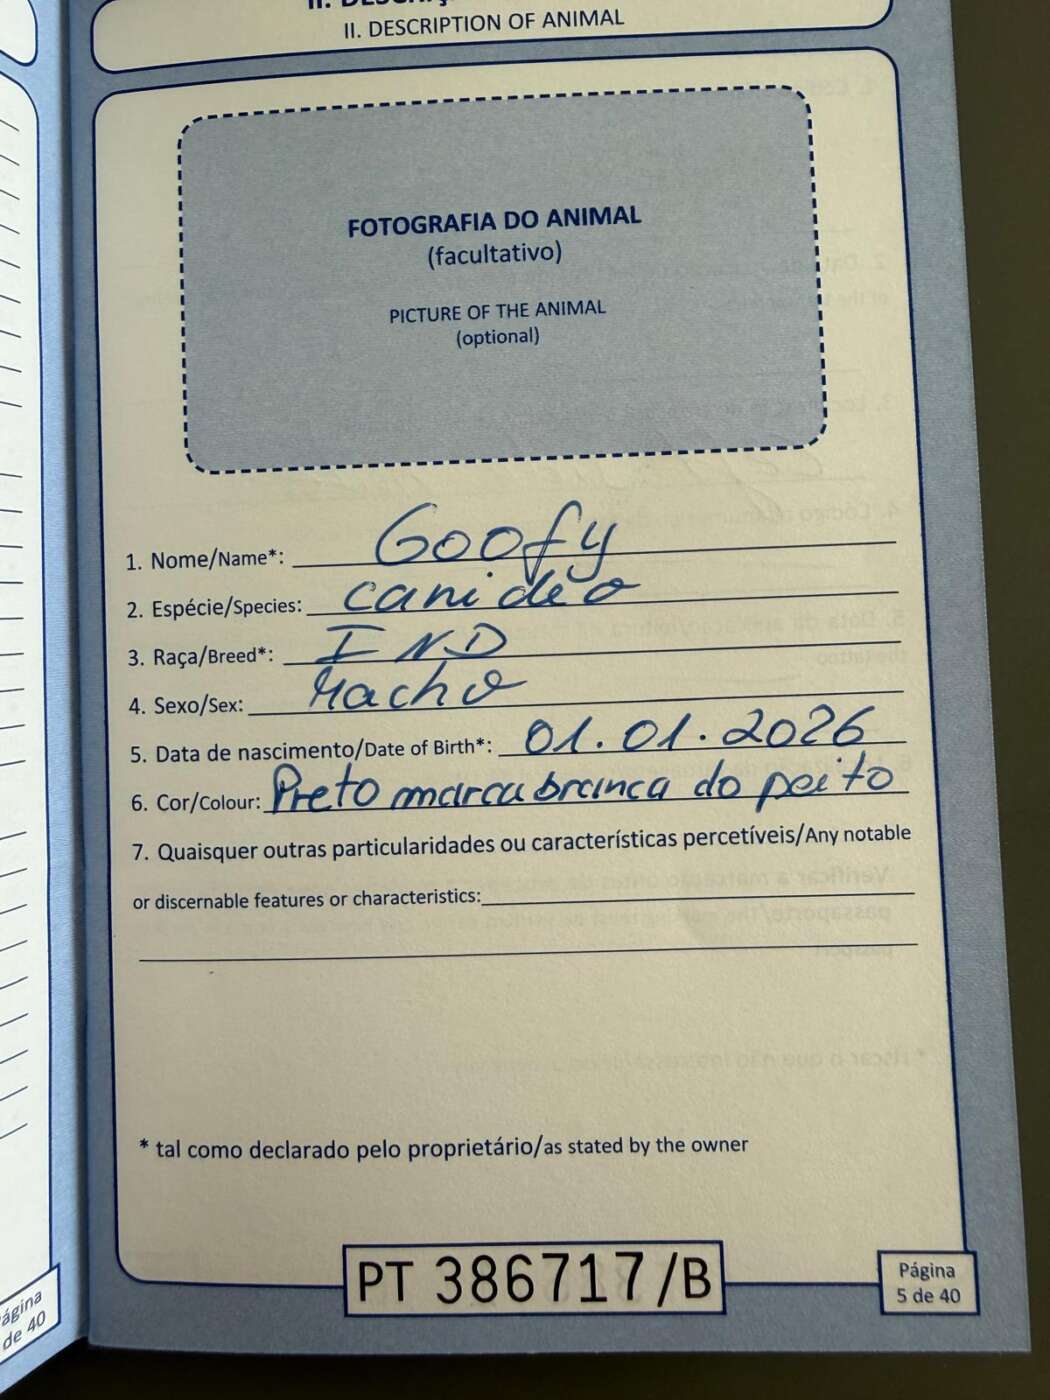 II. DESCRIPTION OF ANIMAL
FOTOGRAFIA DO ANIMAL
(facultativo)
PICTURE OF THE ANIMAL
(optional)
1. Nome/Name*: Goofy
2. Espécie/Species: canideo
3. Raça/Breed*: IND
4. Sexo/Sex: Macho
5. Data de nascimento/Date of Birth*: 01.01.2026
6. Cor/Colour: Preto marca branca do peito
7. Quaisquer outras particularidades ou características percetíveis/Any notable
or discernable features or characteristics:
* tal como declarado pelo proprietário/as stated by the owner
PT 386717/B
Página
5 de 40
ágina
de 40